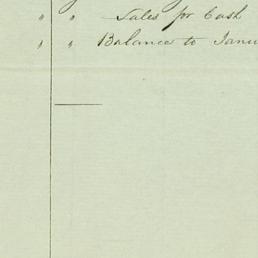 " " Sales for Cash
" " Balance to Janu